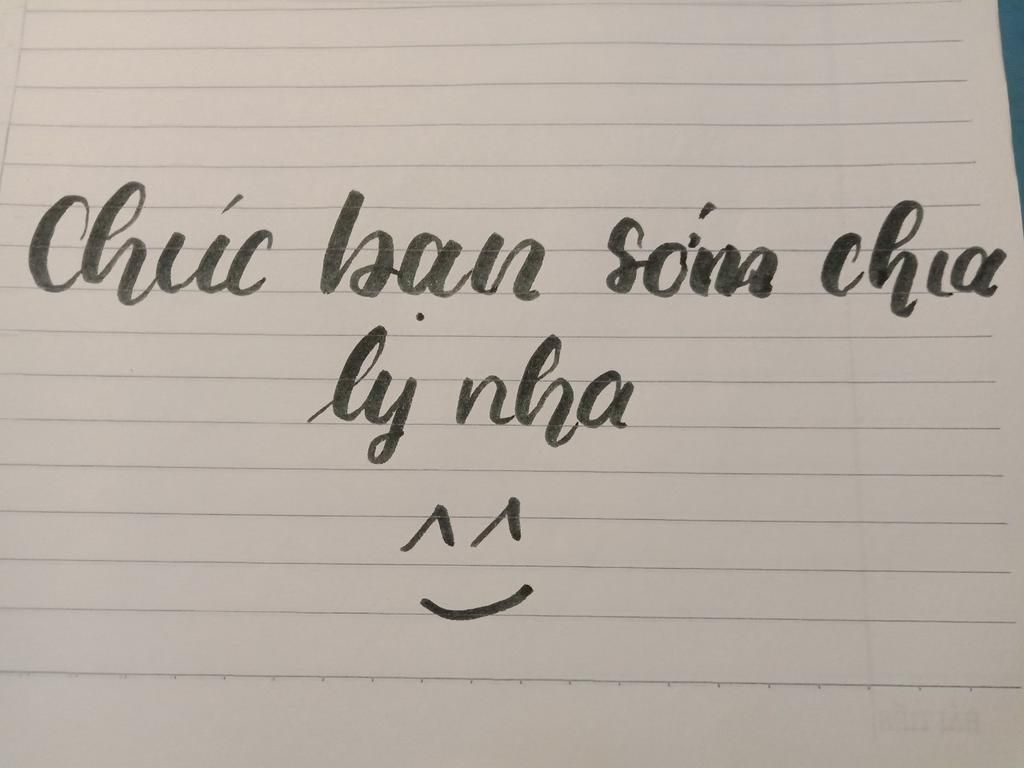 Chúc bạn sớm chia
lỵ nha
^ ^